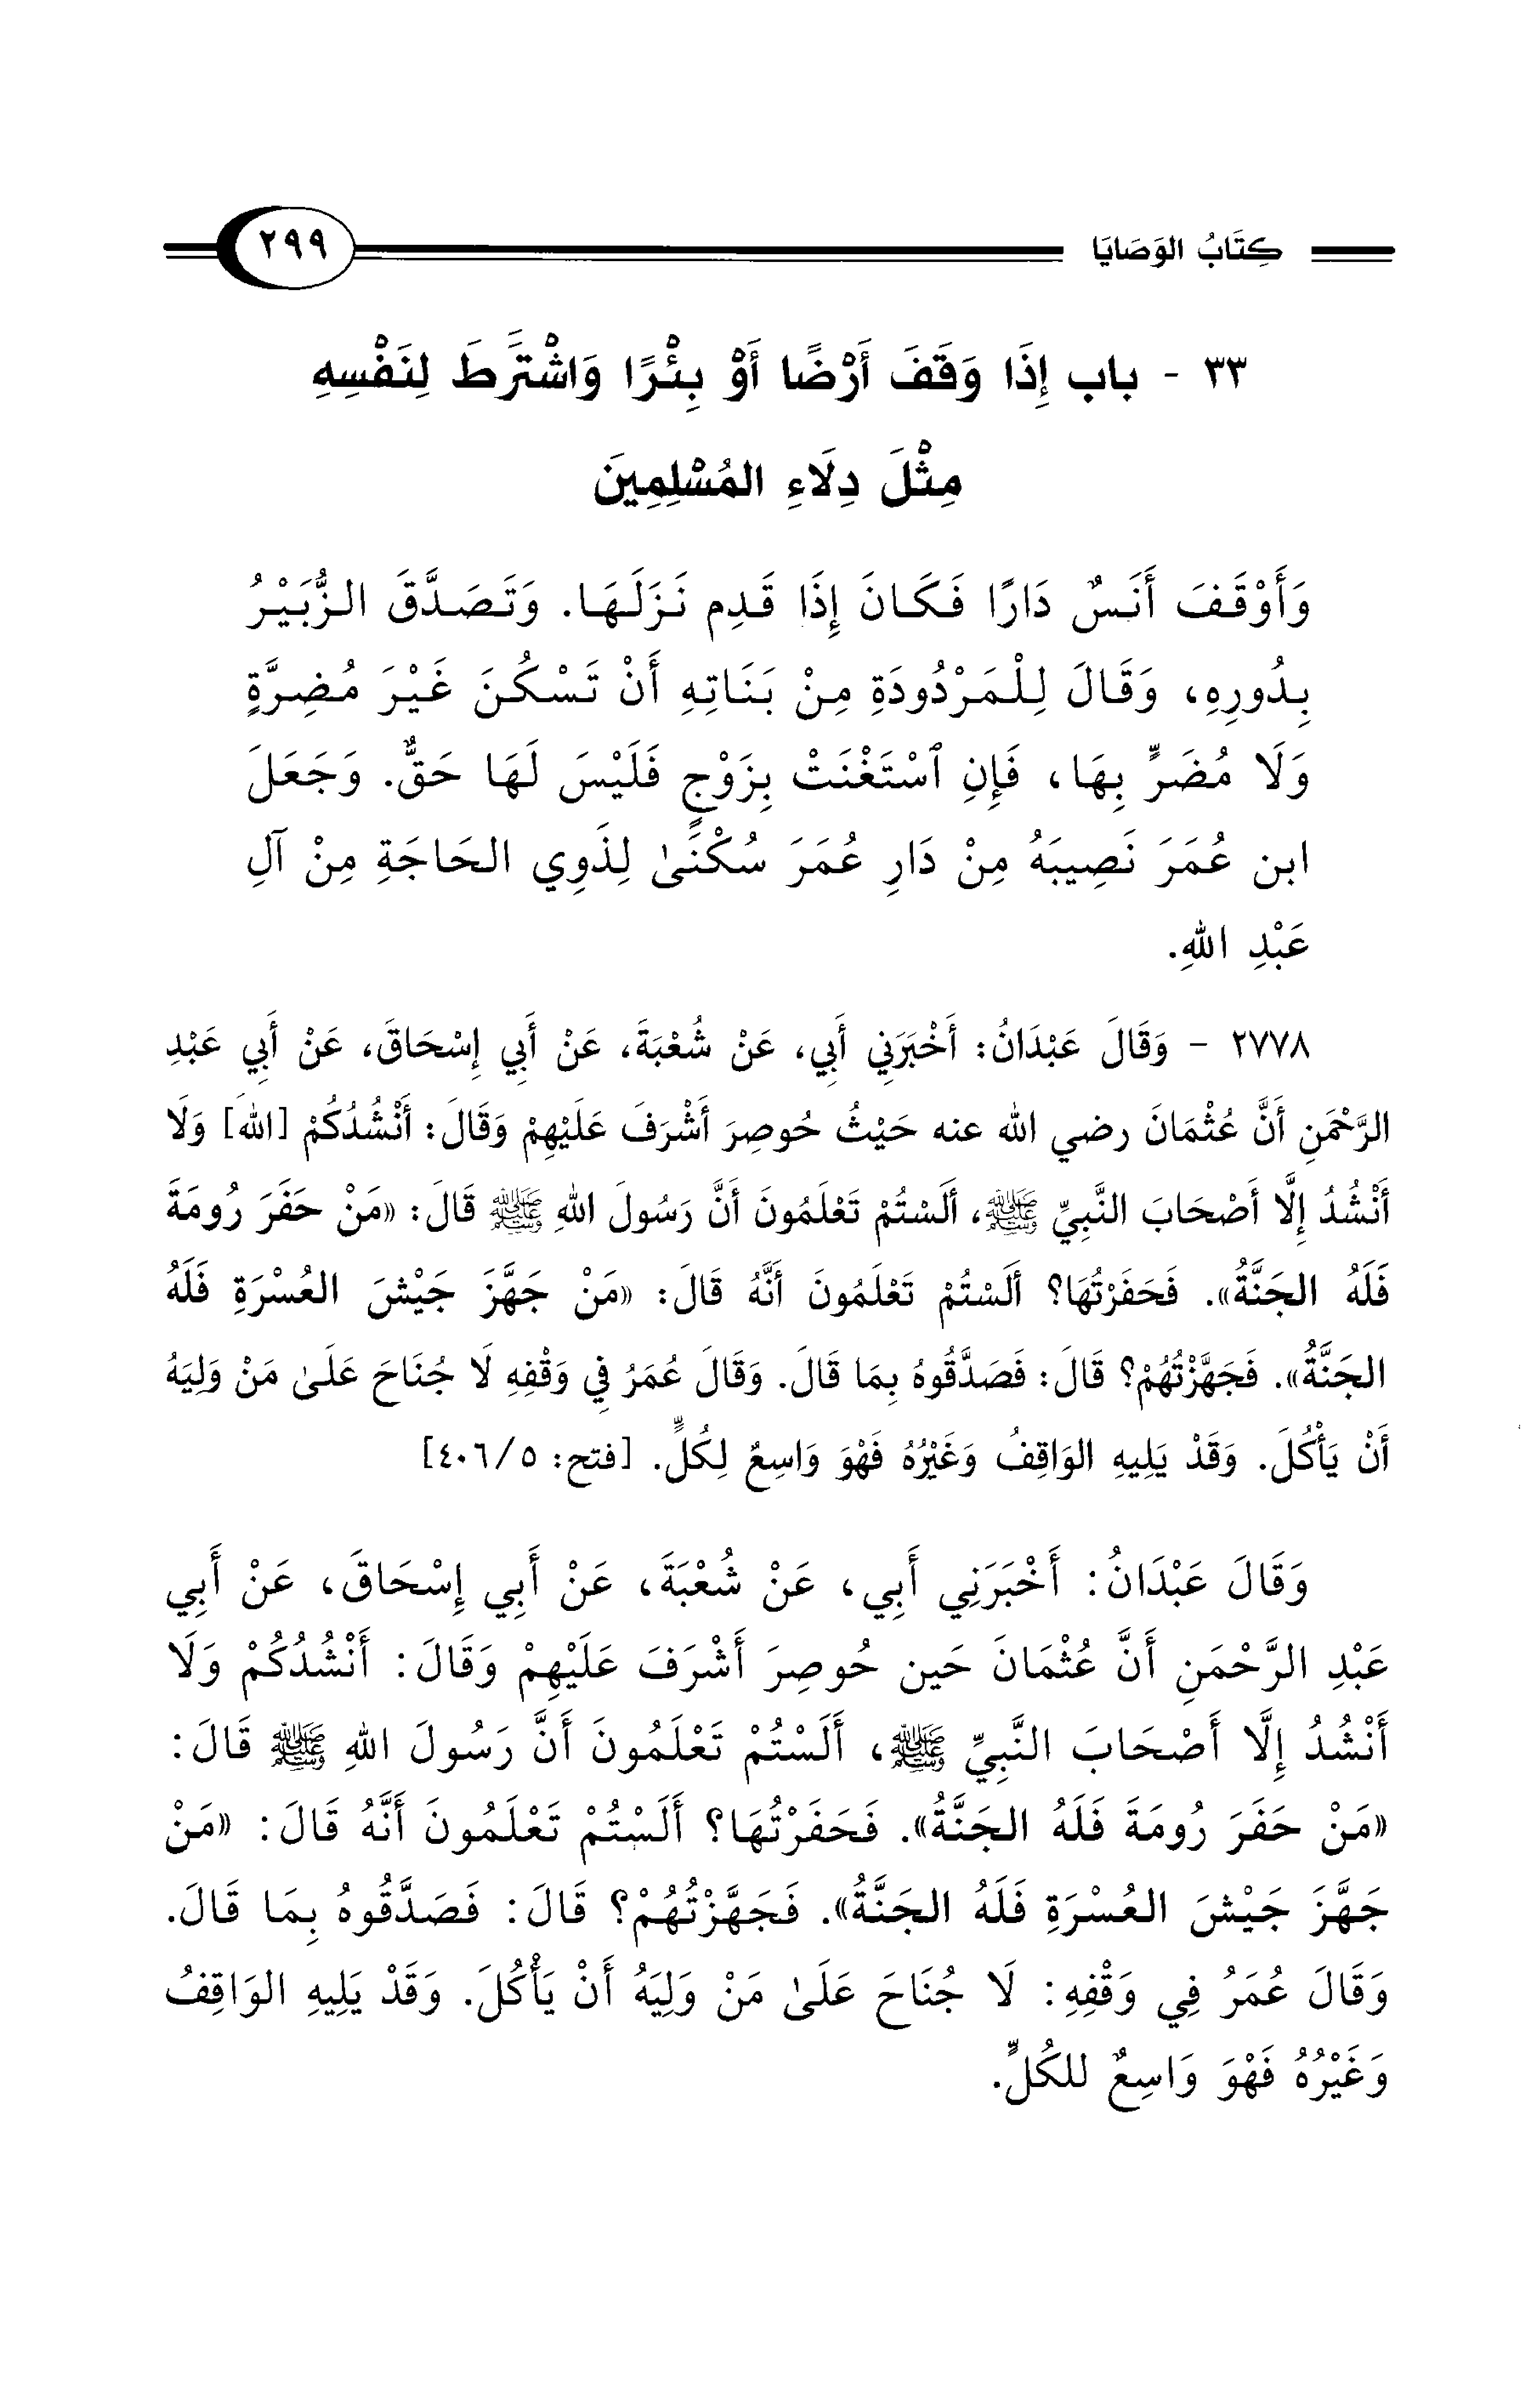 كِتَابُ الوَصَايَا ٢٩٩
٣٣ - باب إِذَا وَقَفَ أَرْضًا أَوْ بِئْرًا وَاشْتَرَطَ لِنَفْسِهِ
مِثْلَ دِلَاءِ المُسْلِمِينَ
وَأَوْقَفَ أَنَسٌ دَارًا فَكَانَ إِذَا قَدِم نَزَلَهَا. وَتَصَدَّقَ الزُّبَيْرُ
بِدُورِهِ، وَقَالَ لِلْمَرْدُودَةِ مِنْ بَنَاتِهِ أَنْ تَسْكُنَ غَيْرَ مُضِرَّةٍ
وَلَا مُضَرٍّ بِهَا، فَإِنِ ٱسْتَغْنَتْ بِزَوْجٍ فَلَيْسَ لَهَا حَقٌّ. وَجَعَلَ
ابن عُمَرَ نَصِيبَهُ مِنْ دَارِ عُمَرَ سُكْنَىٰ لِذَوِي الحَاجَةِ مِنْ آلِ
عَبْدِ اللهِ.
٢٧٧٨ - وَقَالَ عَبْدَانُ: أَخْبَرَنِي أَبِي، عَنْ شُعْبَةَ، عَنْ أَبِي إِسْحَاقَ، عَنْ أَبِي عَبْدِ
الرَّحْمَنِ أَنَّ عُثْمَانَ رضي الله عنه حَيْثُ حُوصِرَ أَشْرَفَ عَلَيْهِمْ وَقَالَ: أَنْشُدُكُمْ [اللهَ] وَلَا
أَنْشُدُ إِلَّا أَصْحَابَ النَّبِيِّ ﷺ، أَلَسْتُمْ تَعْلَمُونَ أَنَّ رَسُولَ اللهِ ﷺ قَالَ: «مَنْ حَفَرَ رُومَةَ
فَلَهُ الجَنَّةُ». فَحَفَرْتُهَا؟ أَلَسْتُمْ تَعْلَمُونَ أَنَّهُ قَالَ: «مَنْ جَهَّزَ جَيْشَ العُسْرَةِ فَلَهُ
الجَنَّةُ». فَجَهَّزْتُهُمْ؟ قَالَ: فَصَدَّقُوهُ بِمَا قَالَ. وَقَالَ عُمَرُ فِي وَقْفِهِ لَا جُنَاحَ عَلَىٰ مَنْ وَلِيَهُ
أَنْ يَأْكُلَ. وَقَدْ يَلِيهِ الوَاقِفُ وَغَيْرُهُ فَهْوَ وَاسِعٌ لِكُلٍّ. [فتح: ٥/ ٤٠٦]
وَقَالَ عَبْدَانُ: أَخْبَرَنِي أَبِي، عَنْ شُعْبَةَ، عَنْ أَبِي إِسْحَاقَ، عَنْ أَبِي
عَبْدِ الرَّحْمَنِ أَنَّ عُثْمَانَ حَين حُوصِرَ أَشْرَفَ عَلَيْهِمْ وَقَالَ: أَنْشُدُكُمْ وَلَا
أَنْشُدُ إِلَّا أَصْحَابَ النَّبِيِّ ﷺ، أَلَسْتُمْ تَعْلَمُونَ أَنَّ رَسُولَ اللهِ ﷺ قَالَ:
«مَنْ حَفَرَ رُومَةَ فَلَهُ الجَنَّةُ». فَحَفَرْتُهَا؟ أَلَسْتُمْ تَعْلَمُونَ أَنَّهُ قَالَ: «مَنْ
جَهَّزَ جَيْشَ العُسْرَةِ فَلَهُ الجَنَّةُ». فَجَهَّزْتُهُمْ؟ قَالَ: فَصَدَّقُوهُ بِمَا قَالَ.
وَقَالَ عُمَرُ فِي وَقْفِهِ: لَا جُنَاحَ عَلَىٰ مَنْ وَلِيَهُ أَنْ يَأْكُلَ. وَقَدْ يَلِيهِ الوَاقِفُ
وَغَيْرُهُ فَهْوَ وَاسِعٌ للكُلِّ.